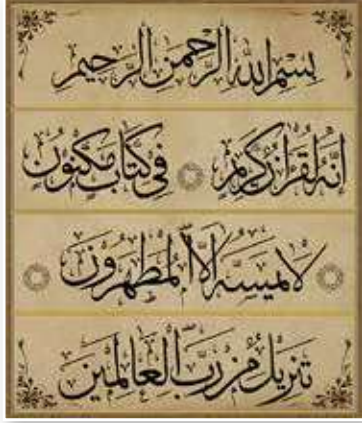 بِسْمِ اللهِ الرَّحْمٰنِ الرَّحِيمِ
اِنَّهُ لَقُرْاٰنٌ كَرِيمٌ فِي كِتَابٍ مَكْنُونٍ
لَا يَمَسُّهُ اِلَّا الْمُطَهَّرُونَ
تَنْزِيلٌ مِنْ رَبِّ الْعَالَمِينَ